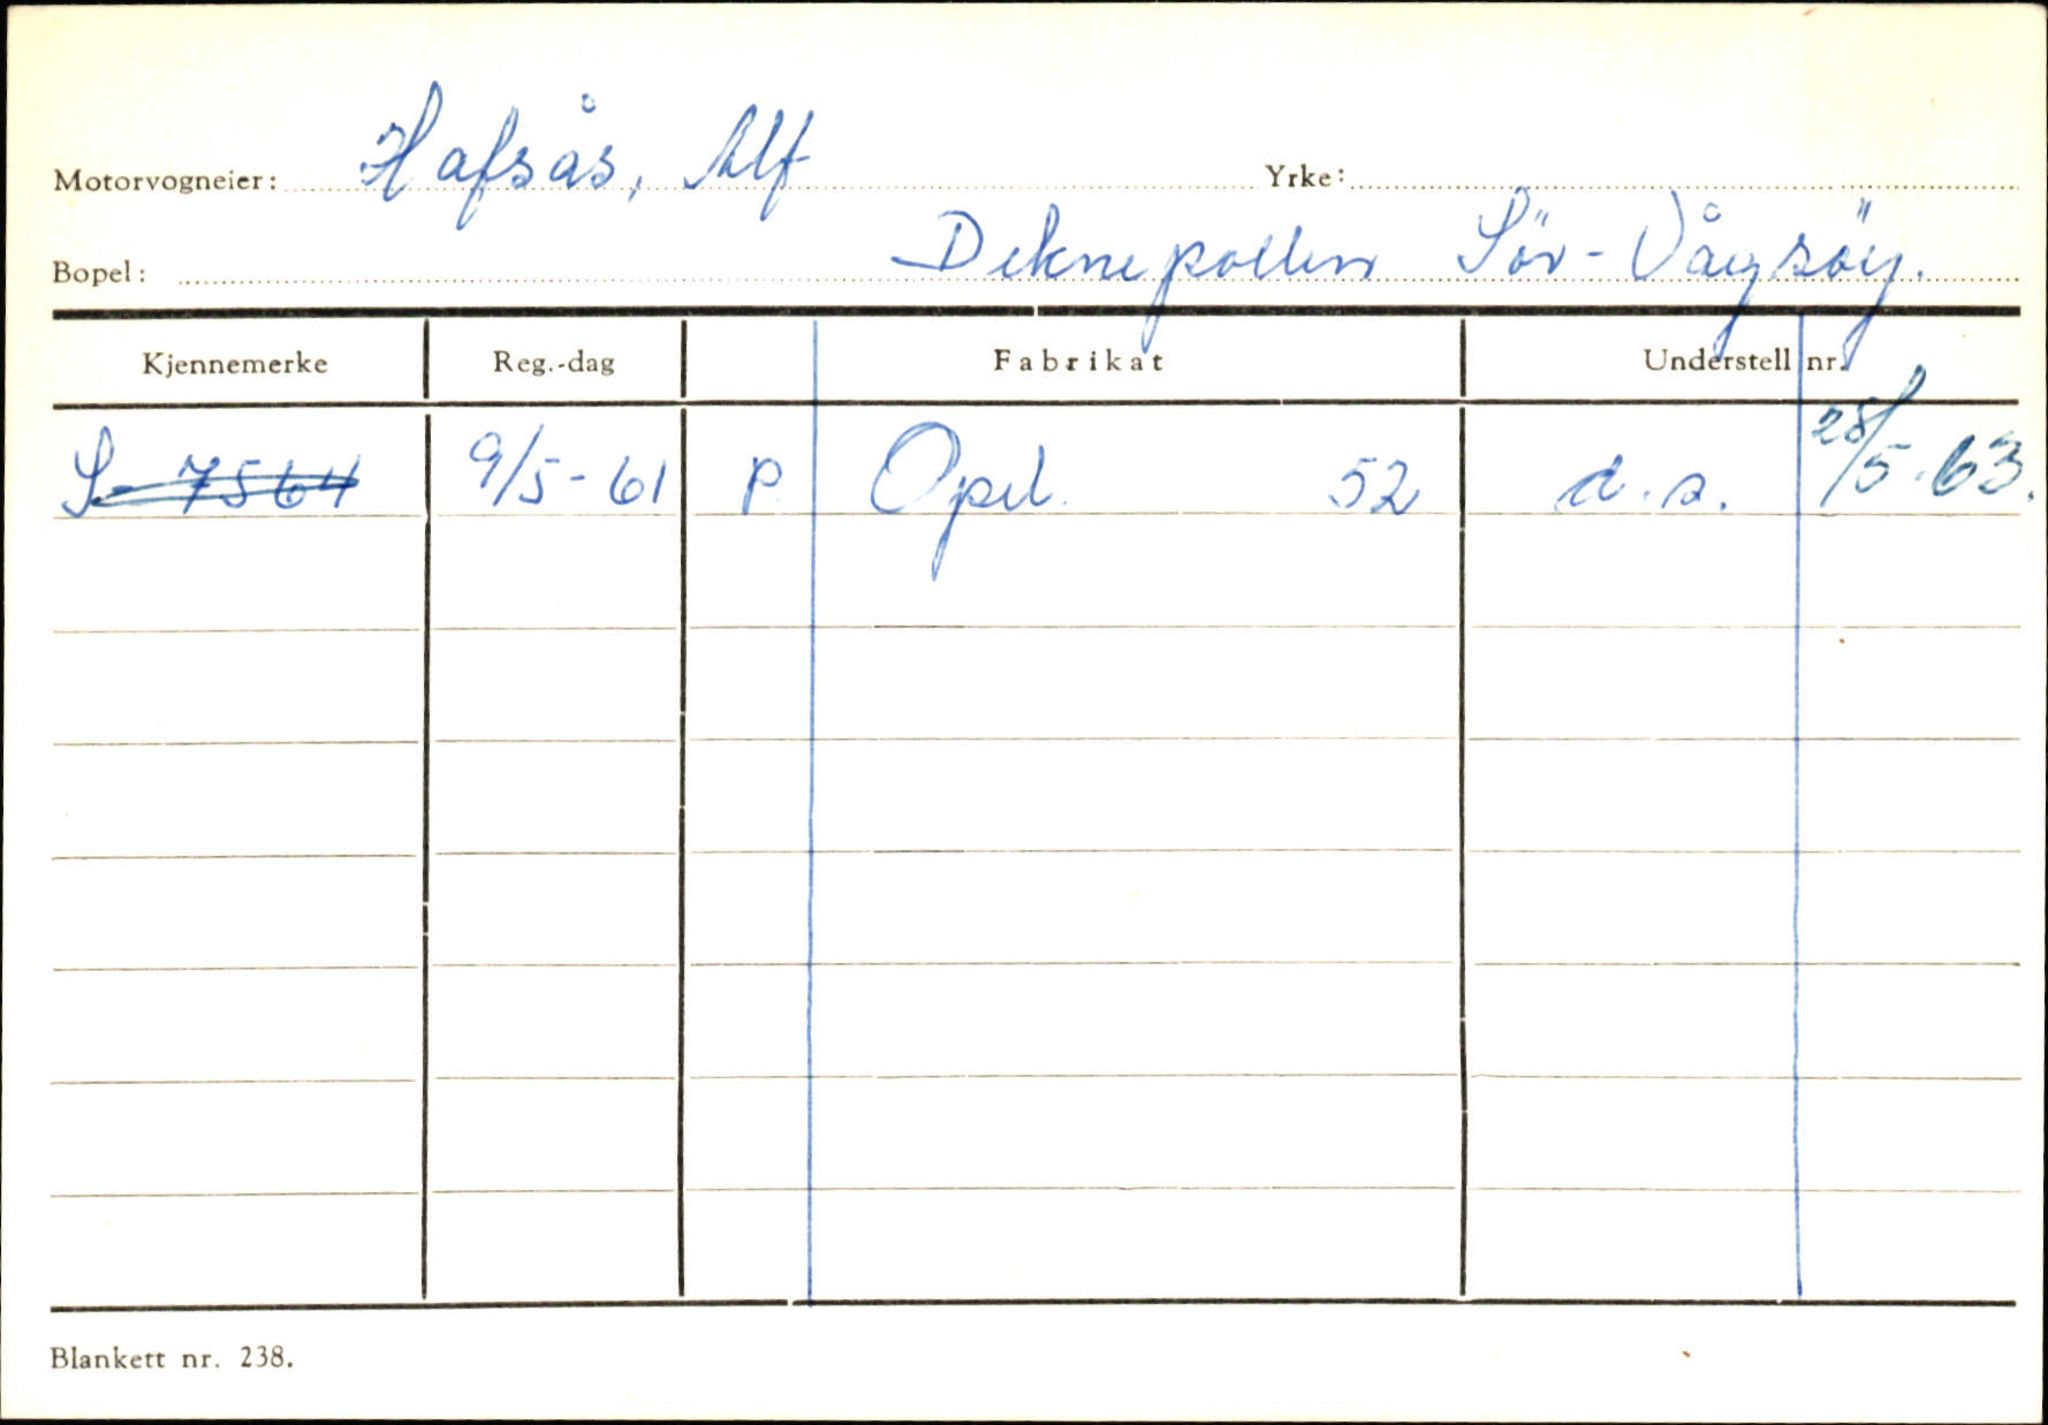 Motorvogneier: Hafsås, Alf Yrke:
Bopel: Deknepollen Sör-Vågsöy.
Kjennemerke Reg.-dag Fabrikat Understell nr.
S-7564 9/5-61 P Opel 52 d.s. 28/5-63.
Blankett nr. 238.